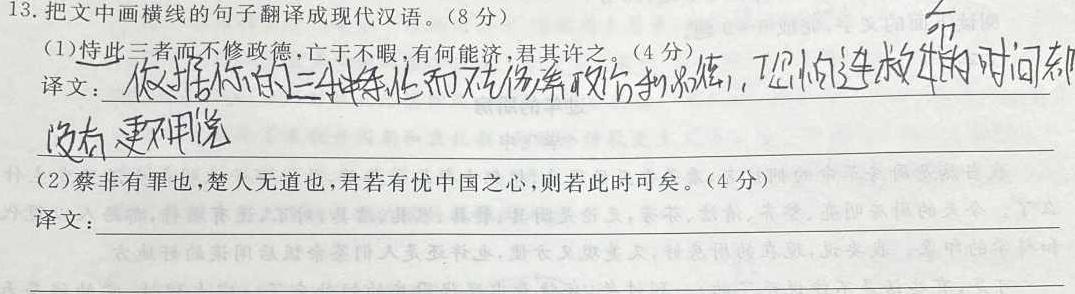 13.把文中画横线的句子翻译成现代汉语。(8分)
(1)恃此三者而不修政德,亡于不暇,有何能济,君其许之。(4分)
译文:依据你的三种条件而不去修养政治和品德,恐怕连救的时间都
没有更不用说
(2)蔡非有罪也,楚人无道也,君若有忧中国之心,则若此时可矣。(4分)
译文: